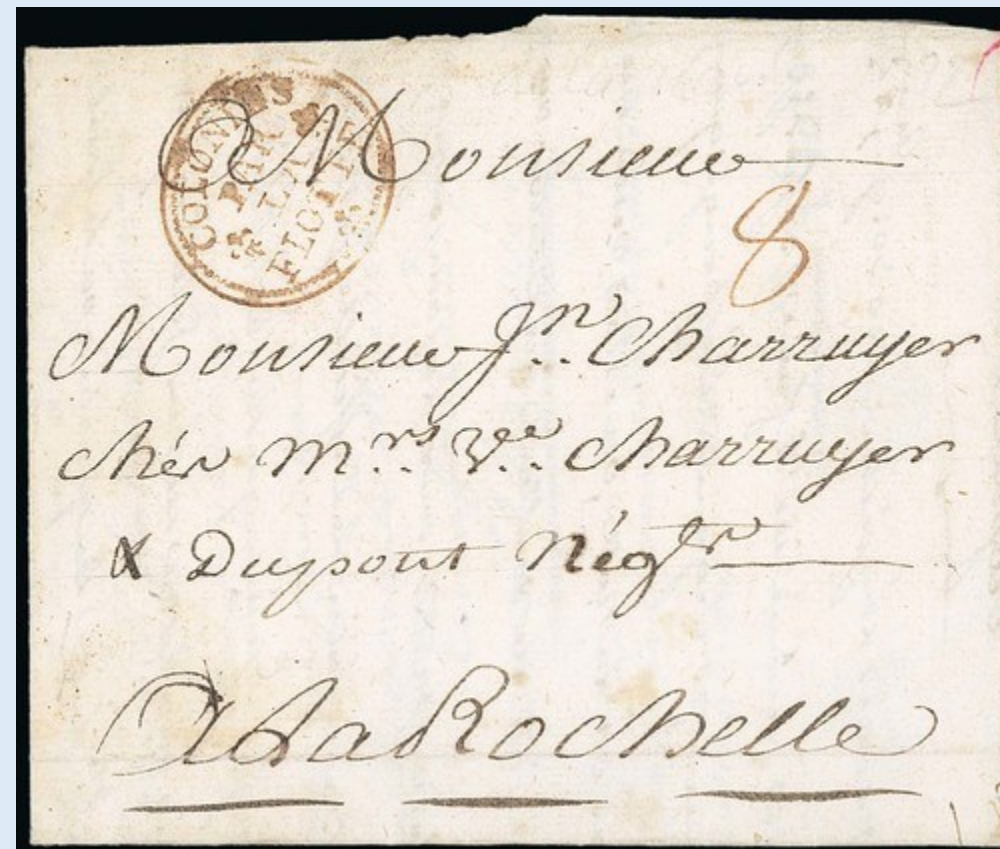 COLONIES
PAR
LA
FLOTTE
A Monsieur
8
Monsieur Jn. Charruyer
chés Mrs. Ve. Charruyer
& Dupont Négts
A La Rochelle